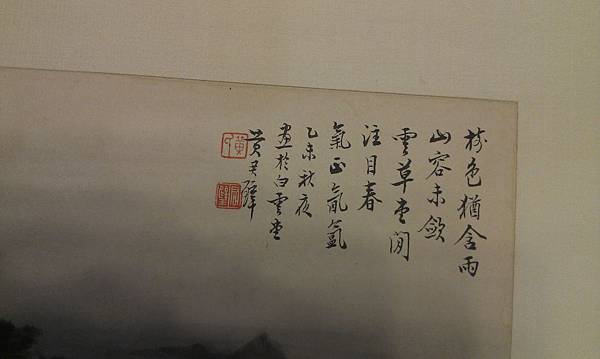 樹色猶含雨
山容未斂
雲草堂閒
注目春
氣正氤氳
乙未秋夜
畫於白雲堂
黃君璧
黃
君璧